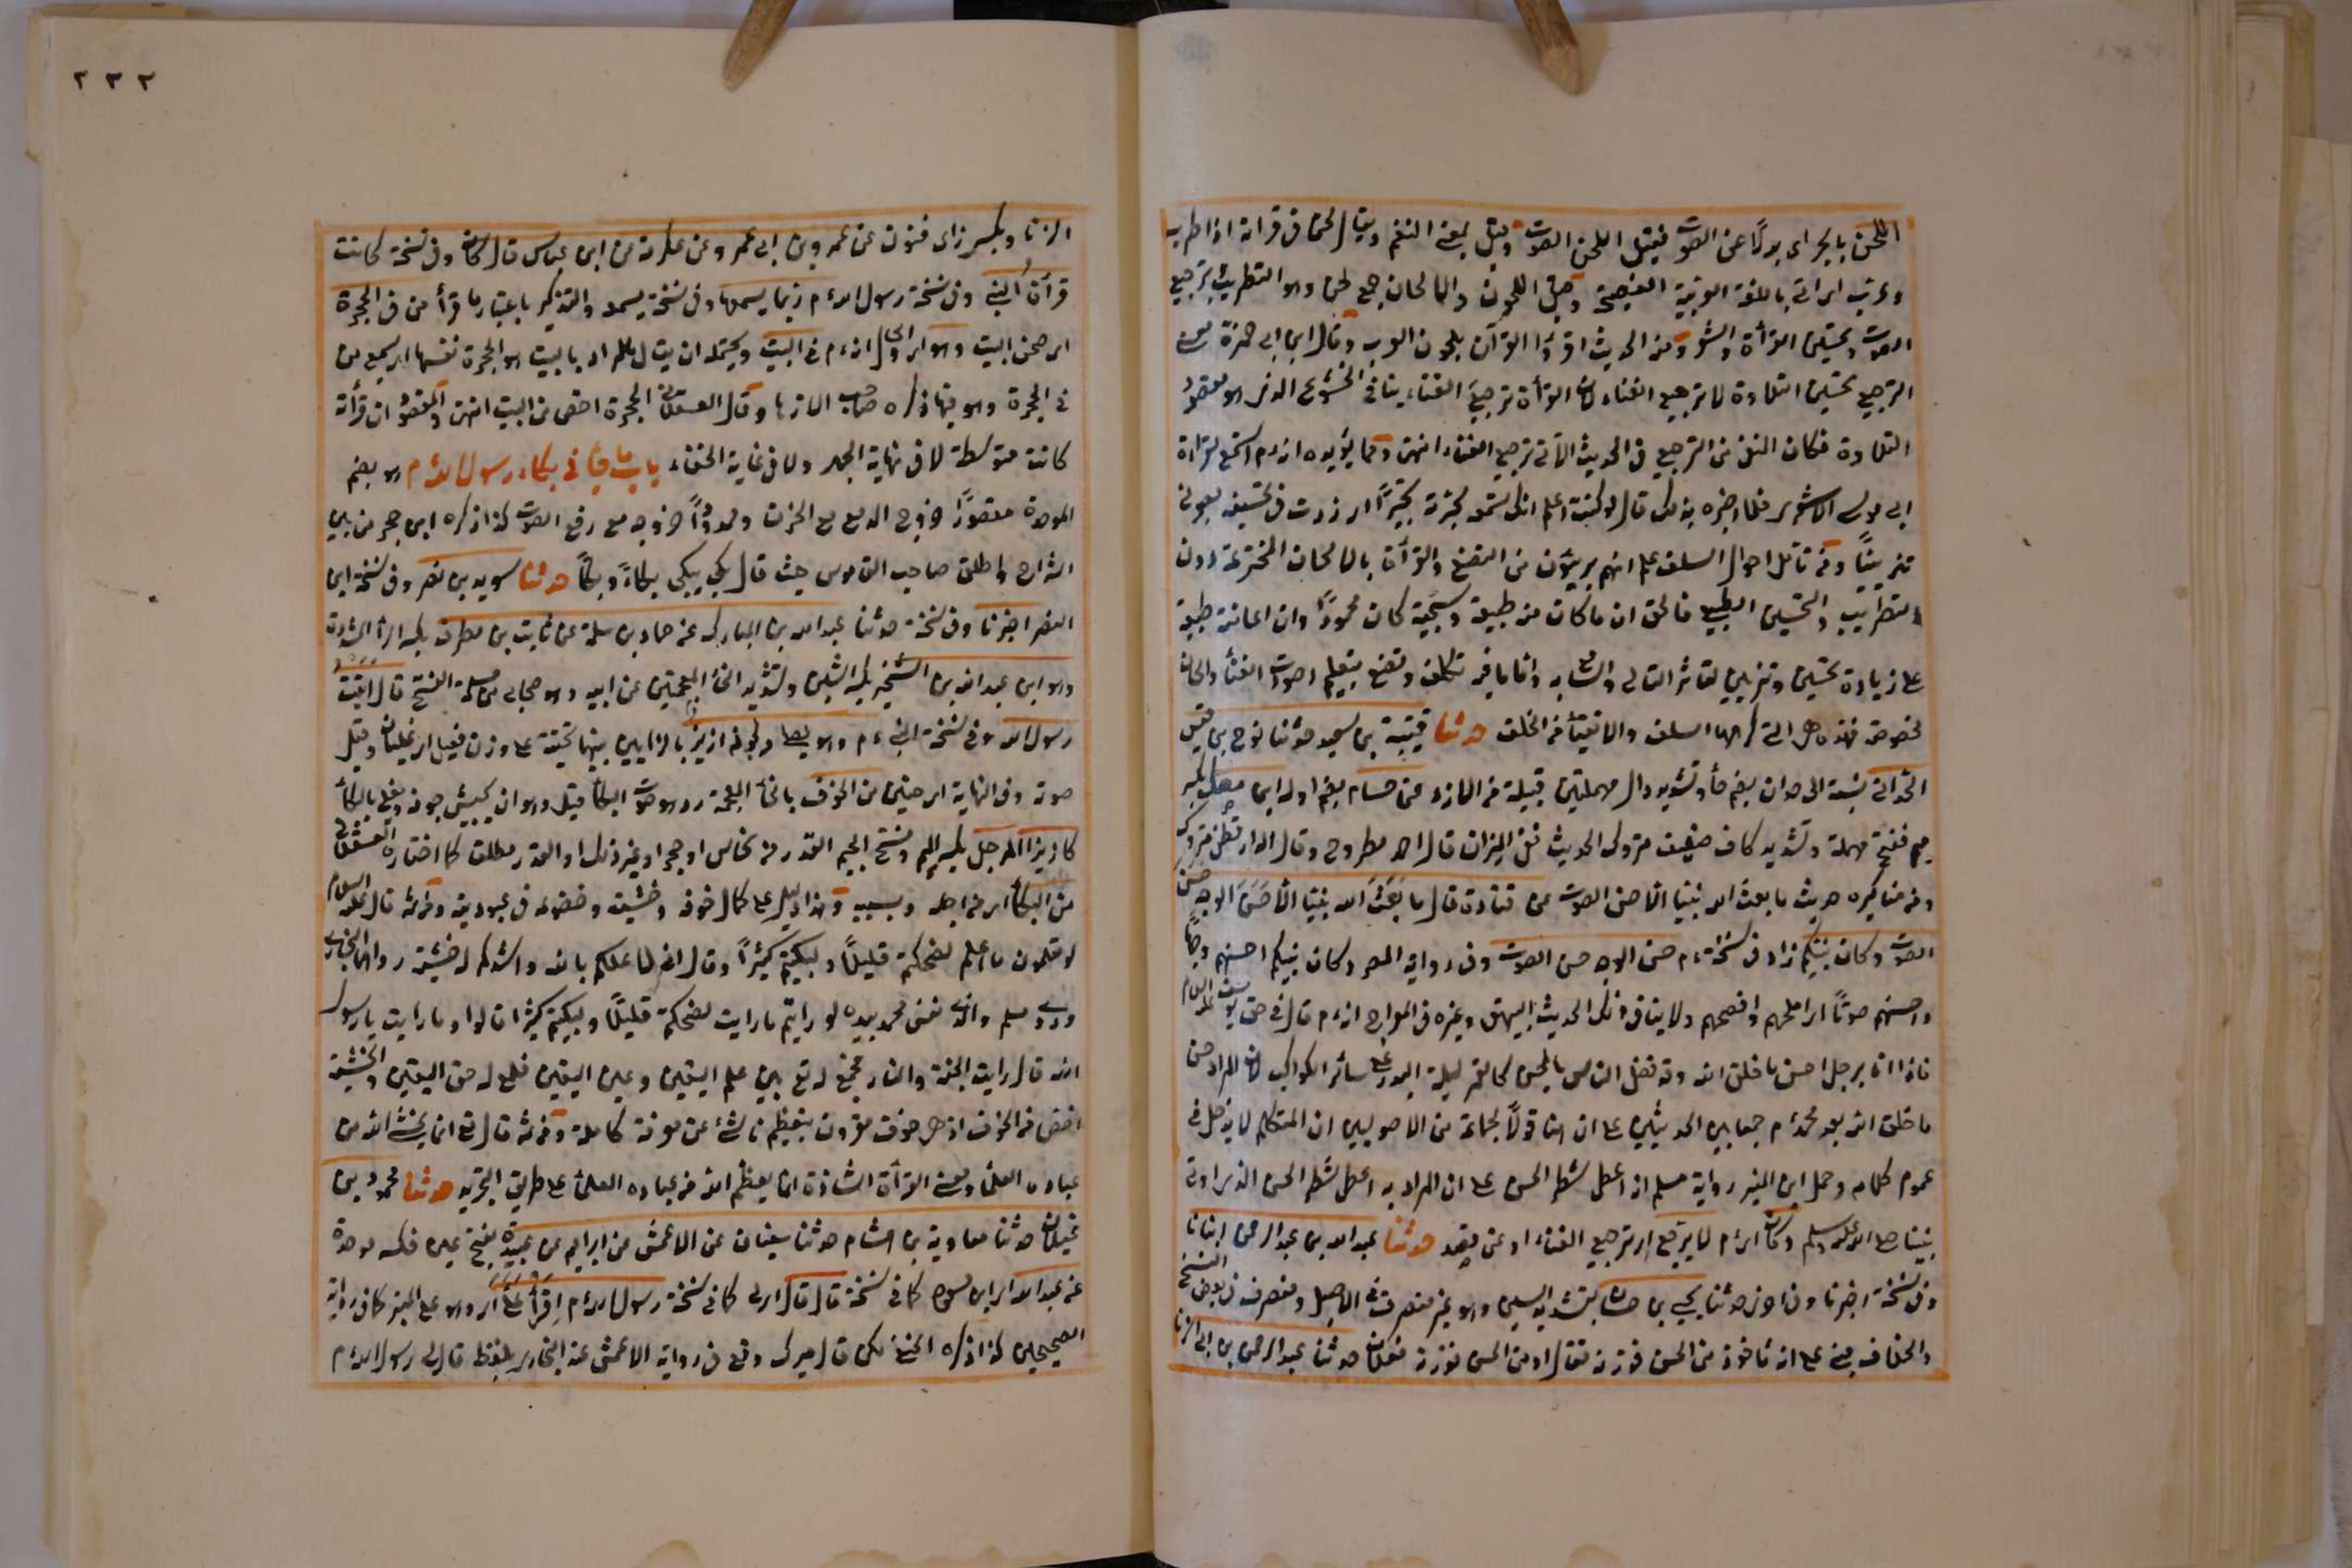 اللحن بالجر اى بدلا عن الصوت فقيل اللحن الصوت وقيل بمعنى النغم ويقال لحن فى قراته اذا طرب
باللغة العربية الفصيحة وقيل اللحون والالحان جمع لحن وهو التطريب وترجيع
الصوت وتحسين القرأة والشعر ومنه الحديث اقرؤا القرآن بلحون العرب وقال ابن ابى جمرة معنى
الترجيع تحسين التلاوة لا ترجيع الغناء لان القرأة بترجيع الغناء ينافى الخشوع الذى هو مقصود
التلاوة فكان النفى من الترجيع فى الحديث الآتى ترجيع الغناء انتهى ومما يؤيده انه م استمع لقرأة
ابى موسى الاشعرى فلما اخبره بذلك قال لو كنت اعلم انك تسمع لحبرته تحبيرًا اى زدت فى تحسينه بصوتى
تزيينًا ومن تأمل احوال السلف علم انهم بريئون من التصنع والقرآة بالالحان المخترعة دون
التطريب والتحسين الطبيعى فالحق ان ما كان من طبيعة وسجية كان محمودًا وان اعانته طبيعة
على زيادة تحسين وتزيين لتأثر التالى والسامع به واما ما فيه تكلف وتصنع بتعلم اصوات الغناء والحان
مخصوصة فهذه هى التى كرهها السلف والاتقياء من الخلف حدثنا قتيبة بن سعيد حدثنا نوح بن قيس
الحدانى نسبة الى حدان بضم حأ وتشديد دال مهملتين قبيلة من الازد عن حسام بضم اوله ابن مصك بكسر
ميم ففتح مهملة وتشديد كاف ضعيف متروك الحديث ففى الميزان قال احمد مطروح وقال الدارقطنى متروك
ومن مناكيره حديث ما بعث الله نبيا الا حسن الصوت عن قتادة قال ما بَعَثَ الله نبيًا الا حسن الوجه حسن
الصوت وكان نبيكم زاد فى نسخة م حسن الوجه حسن الصوت وفى رواية المص وكان نبيكم احسنهم وجهًا
واحسنهم صوتًا اى املحهم وافصحهم ولا ينافى ذلك الحديث البيهقى وغيره فى المعراج انه م قال فى حق يوسف عليه السلام
فاذا انا برجل احسن ما خلق الله وقد فضل الناس بالحسن كالقمر ليلة البدر على سائر الكواكب لان المراد احسن
ما خلق الله بعد محمد م جمعا بين الحديثين على ان هنا قولًا لجماعة من الاصوليين ان المتكلم لا يدخل فى
عموم كلامه وحمل ابن المنير رواية مسلم انه اعطى شطر الحسن على ان المراد به اعطى شطر الحسن الذى اوتى
نبينا صلى الله عليه وسلم وكان اى م لا يرجع اى ترجيع الغناء او عن قصد حدثنا عبد الله بن عبد الرحمن انبانا
وفى نسخة اخبرنا وفى اخرى حدثنا يحيى بن حسان بتشديد السين وهو غير منصرف فى الاصل ومنصرف فى بعض النسخ
والخلاف مبنى على انه مأخوذ من الحسن فوزنه فعال او من الحس فوزنه فعلان حدثنا عبد الرحمن بن ابى الزنا
٢٣٢
الزناد بكسر زاى فنون عن عمرو بن ابى عمرو عن عكرمة عن ابن عباس قال كان وفى نسخة كانت
قرآة النبى وفى نسخة رسول الله م ربما يسمعها وفى نسخة يسمعه والتذكير باعتبار ما قرأ من فى الحجرة
اى صحن البيت وهو اى والحال انه م فى البيت ويحتمل ان يقال المراد بالبيت هو الحجرة نفسها اى يسمع من
فى الحجرة وهو فيها ذكره صاحب الازهار وقال العسقلانى الحجرة اخص من البيت انتهى والمقصود ان قرأته
كانت متوسطة لا فى نهاية الجهر ولا فى غاية الخفاء باب ما جأ فى بكاء رسول الله م هو بضم
الموحدة مقصورًا خروج الدمع مع الحزن وممدودًا خروجه مع رفع الصوت كذا ذكره ابن حجر من بين
الشراح واطلق صاحب القاموس حيث قال بكى يبكى بكاءً وبكًا حدثنا سويد بن نصر وفى نسخة ابن
النضر اخبرنا وفى نسخة حدثنا عبد الله بن المبارك عن حماد بن سلمة عن ثابت بن مطرف بكسر الرأ المشددة
وهو ابن عبد الله بن الشخير بكسر الشين وتشديد الخأ المعجمتين عن ابيه وهو صحابى من مسلمة الفتح قال اتيت
رسول الله وفى نسخة النبى م وهو يصلى ولجوفه ازيز بالزايين بينهما تحتية على وزن فعيل اى غليان وقيل
صوت وفى النهاية اى حنين من الخوف بالخأ المعجمة وهو صوت البكأ قيل وهو ان يجيش جوفه ويغلى بالبكأ
كازيز المرجل بكسر الميم وفتح الجيم القدر من نحاس او حجر او غير ذلك او القدر مطلقا كما اختاره العسقلانى
من البكأ اى من اجله وبسببه وهذا دليل على كمال خوفه وخشيته وخضوعه فى عبوديته ومن ثمه قال عليه السلام
لو تعلمون ما اعلم لضحكتم قليلًا ولبكيتم كثيرًا وقال انى لاعلمكم بالله واشدكم له خشية رواهما البخارى
وروى مسلم والذى نفس محمد بيده لو رايتم ما رايت لضحكتم قليلًا ولبكيتم كثيرا قالوا وما رايت يا رسول
الله قال رايت الجنة والنار فجمع له تع بين علم اليقين وعين اليقين فلع له حق اليقين والخشية
اخص من الخوف اذ هى خوف مقرون بتعظيم ناشئ عن معرفة كاملة ومن ثمه قال تع انما يخشى الله من
عباده العلمأ ومعنى القرأة الشاذة انما يعظم الله من عباده العلمأ على طريق التجريد حدثنا محمود بن
غيلان حدثنا معاوية بن هشام حدثنا سفيان عن الاعمش عن ابراهيم عن عبيدة بفتح عين فكسر موحدة
عن عبد الله اى ابن مسعود كما فى نسخة قال قال لى كما فى نسخة رسول الله م اقرأ علىّ اى وهو على المنبر كما فى رواية
الصحيحين كذا ذكره الحنفى لكن قال ميرك وقع فى رواية الاعمش عند البخارى بلفظ قال لى رسول الله م